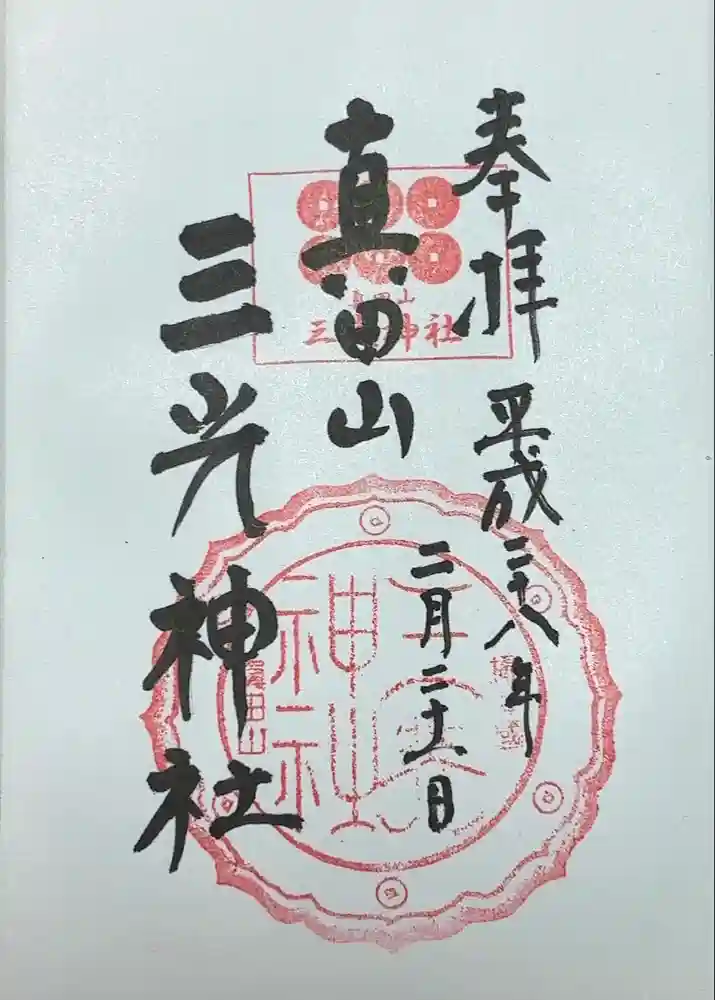 奉拝 平成二十八年
二月二十一日
真田山
三光神社
真田山
三光神社
三光
神社
真田山